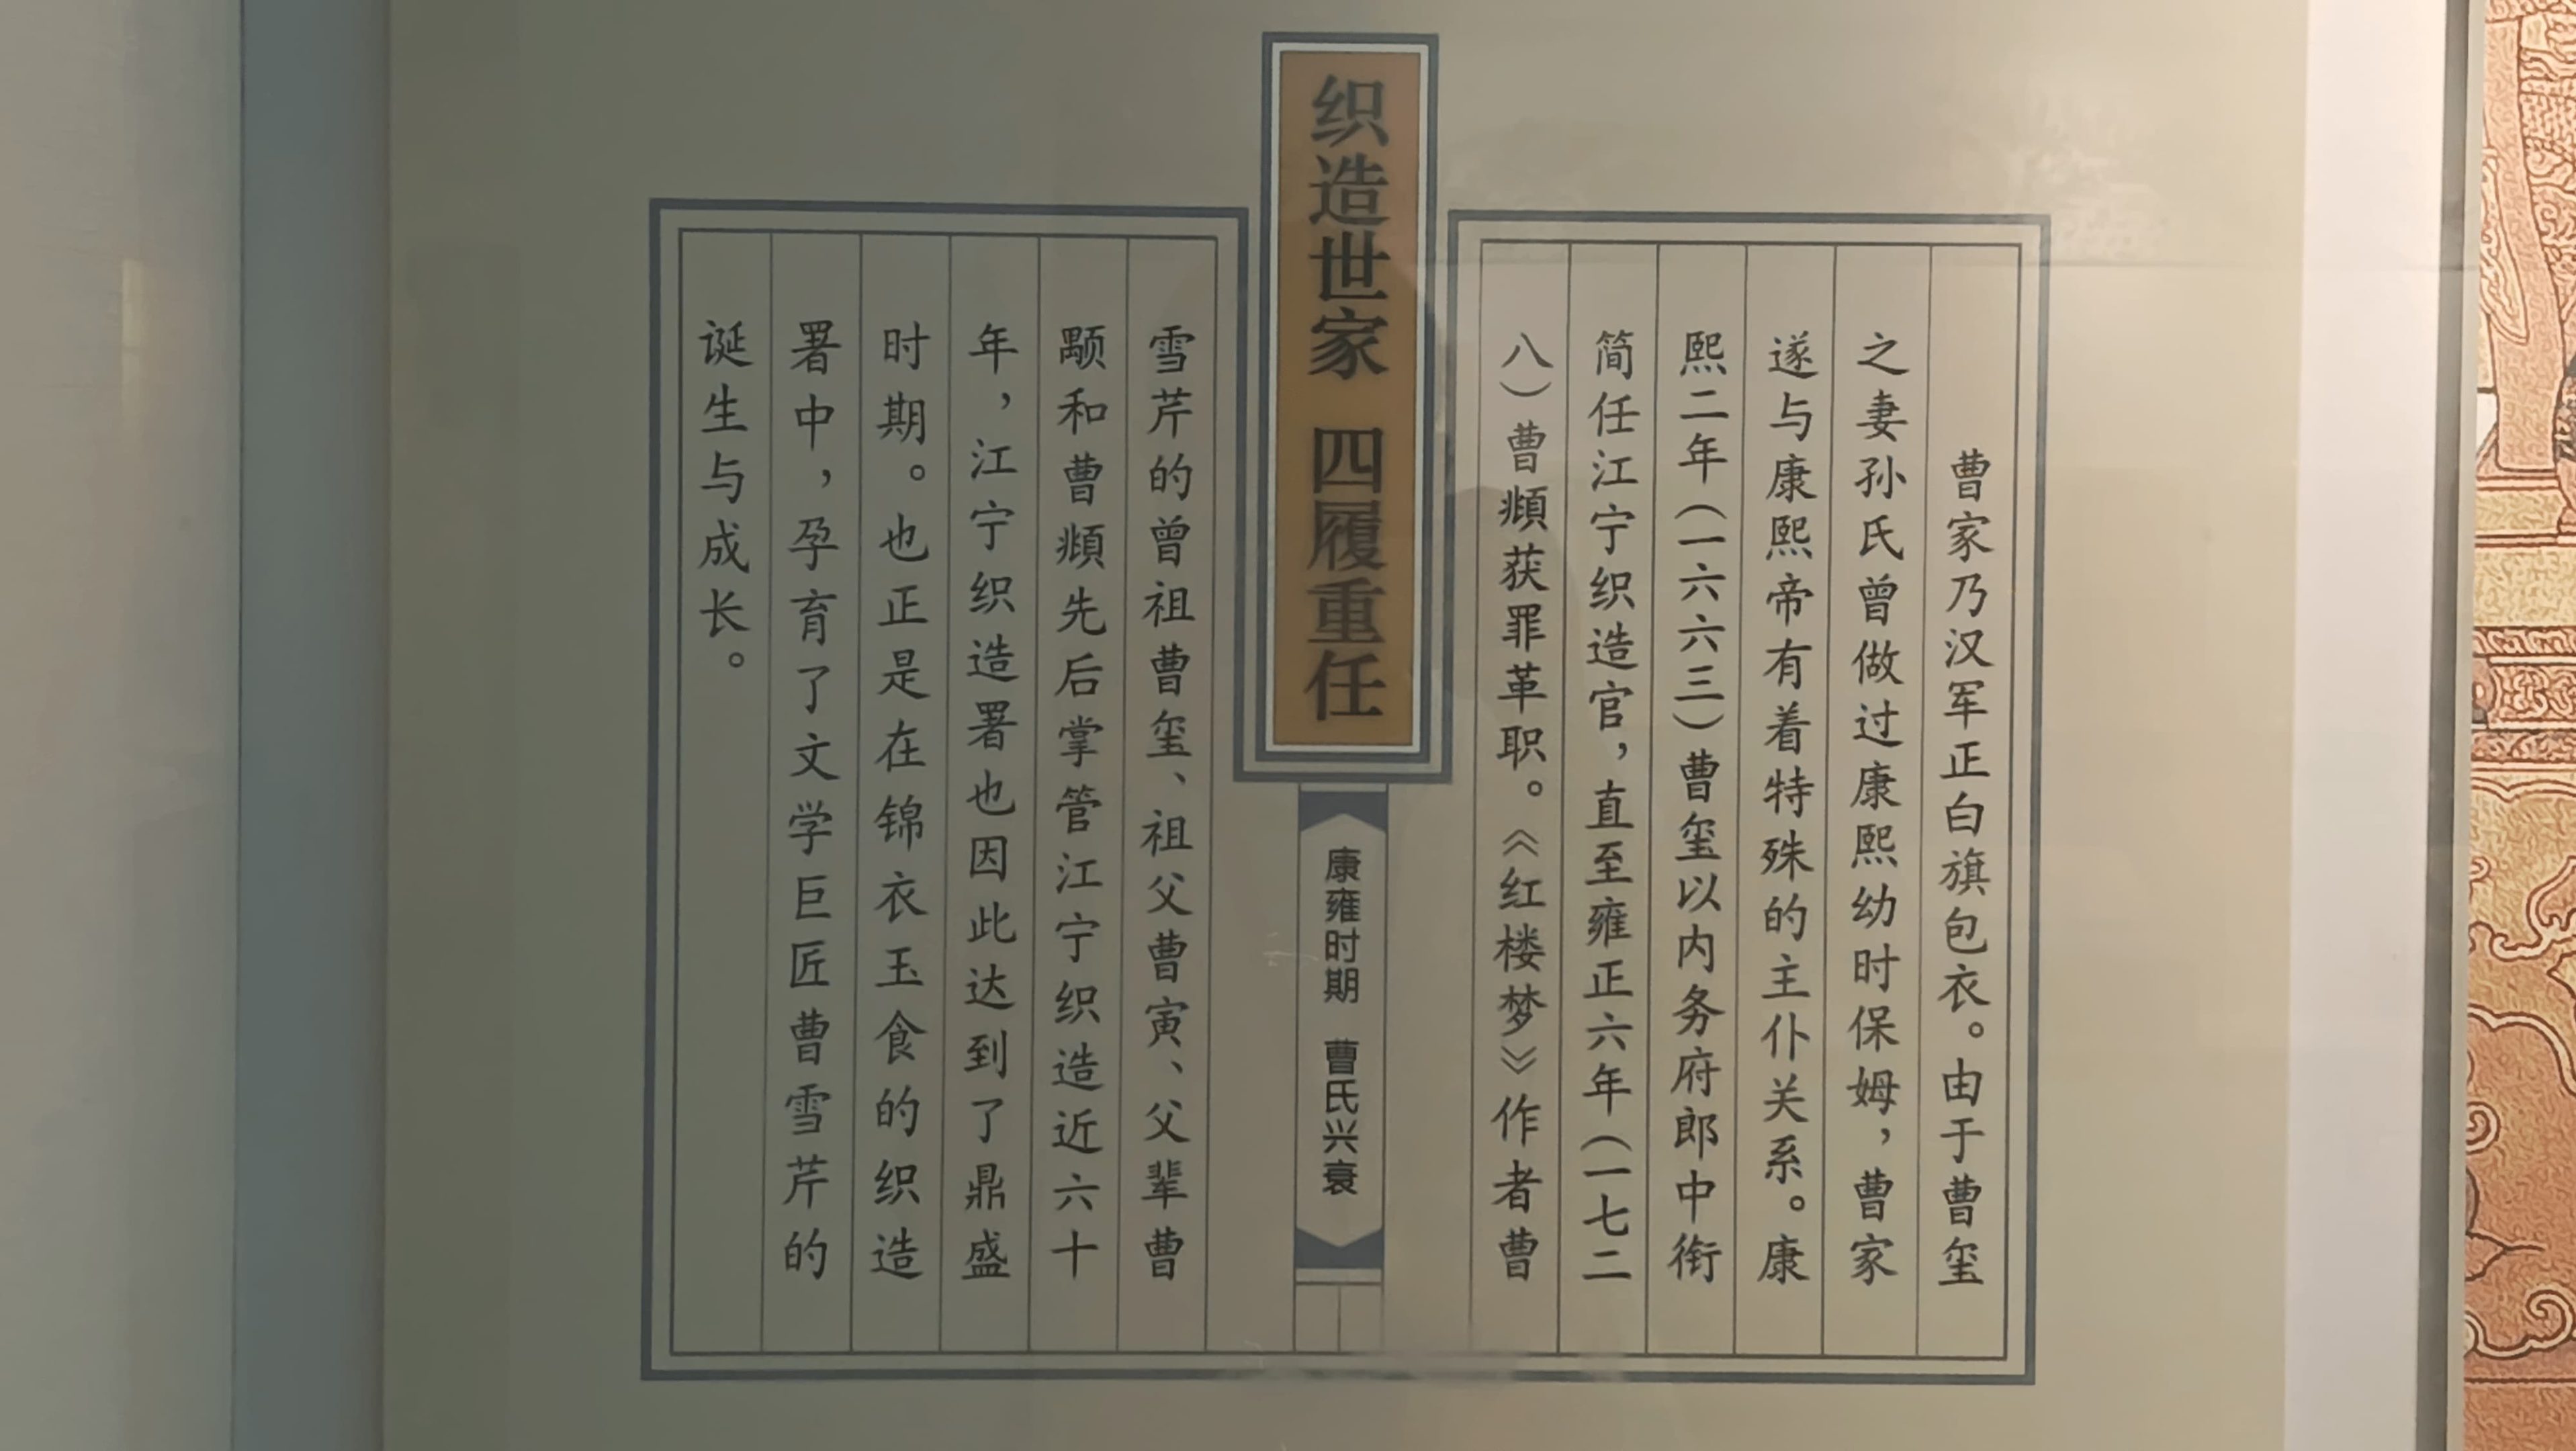 织造世家 四履重任
康雍时期 曹氏兴衰
曹家乃汉军正白旗包衣。由于曹玺
之妻孙氏曾做过康熙幼时保姆，曹家
遂与康熙帝有着特殊的主仆关系。康
熙二年（一六六三）曹玺以内务府郎中衔
简任江宁织造官，直至雍正六年（一七二
八）曹頫获罪革职。《红楼梦》作者曹
雪芹的曾祖曹玺、祖父曹寅、父辈曹
颙和曹頫先后掌管江宁织造近六十
年，江宁织造署也因此达到了鼎盛
时期。也正是在锦衣玉食的织造
署中，孕育了文学巨匠曹雪芹的
诞生与成长。